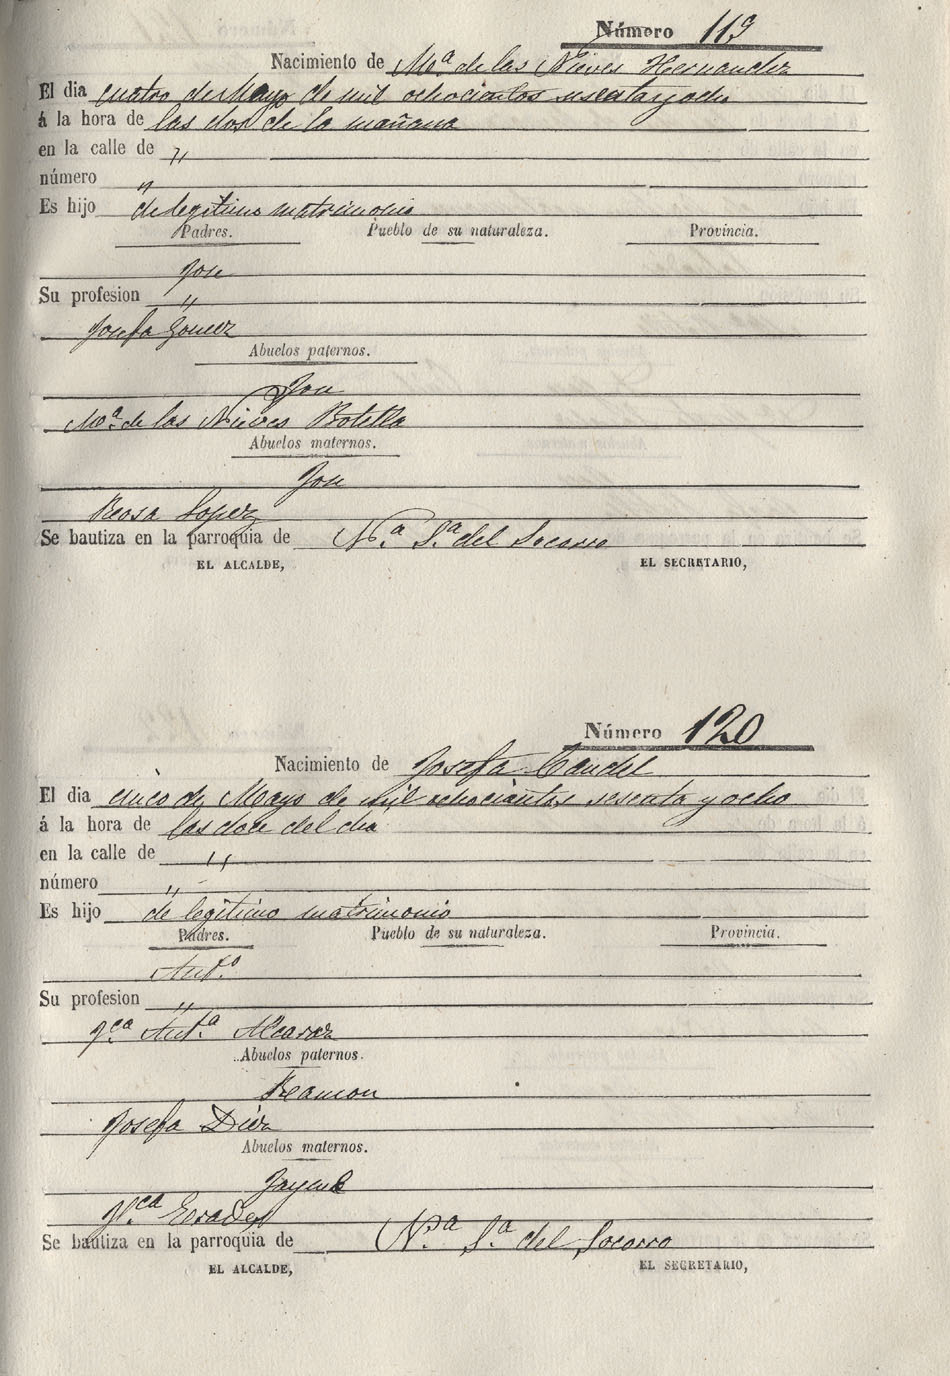 Número 119
Nacimiento de Mª de las Nieves Hernandez
El dia cuatro de Mayo de mil ochocientos sesenta y ocho
á la hora de las dos de la mañana
en la calle de "
número "
Es hijo de legitimo matrimonio
Padres. Pueblo de su naturaleza. Provincia.
Jose
Su profesion "
Josefa Gomez
Abuelos paternos.
Jose
Mª de las Nieves Botella
Abuelos maternos.
Jose
Rosa Lopez
Se bautiza en la parroquia de Nª Sª del Socorro
EL ALCALDE, EL SECRETARIO,
Número 120
Nacimiento de Josefa Candel
El dia cinco de Mayo de mil ochocientos sesenta y ocho
á la hora de las doce del dia
en la calle de "
número "
Es hijo de legitimo matrimonio
Padres. Pueblo de su naturaleza. Provincia.
Antº
Su profesion "
Antª Alcaraz
Abuelos paternos.
Ramon
Josefa Diez
Abuelos maternos.
Jayme
Se bautiza en la parroquia de Nª Sª del Socorro
EL ALCALDE, EL SECRETARIO,